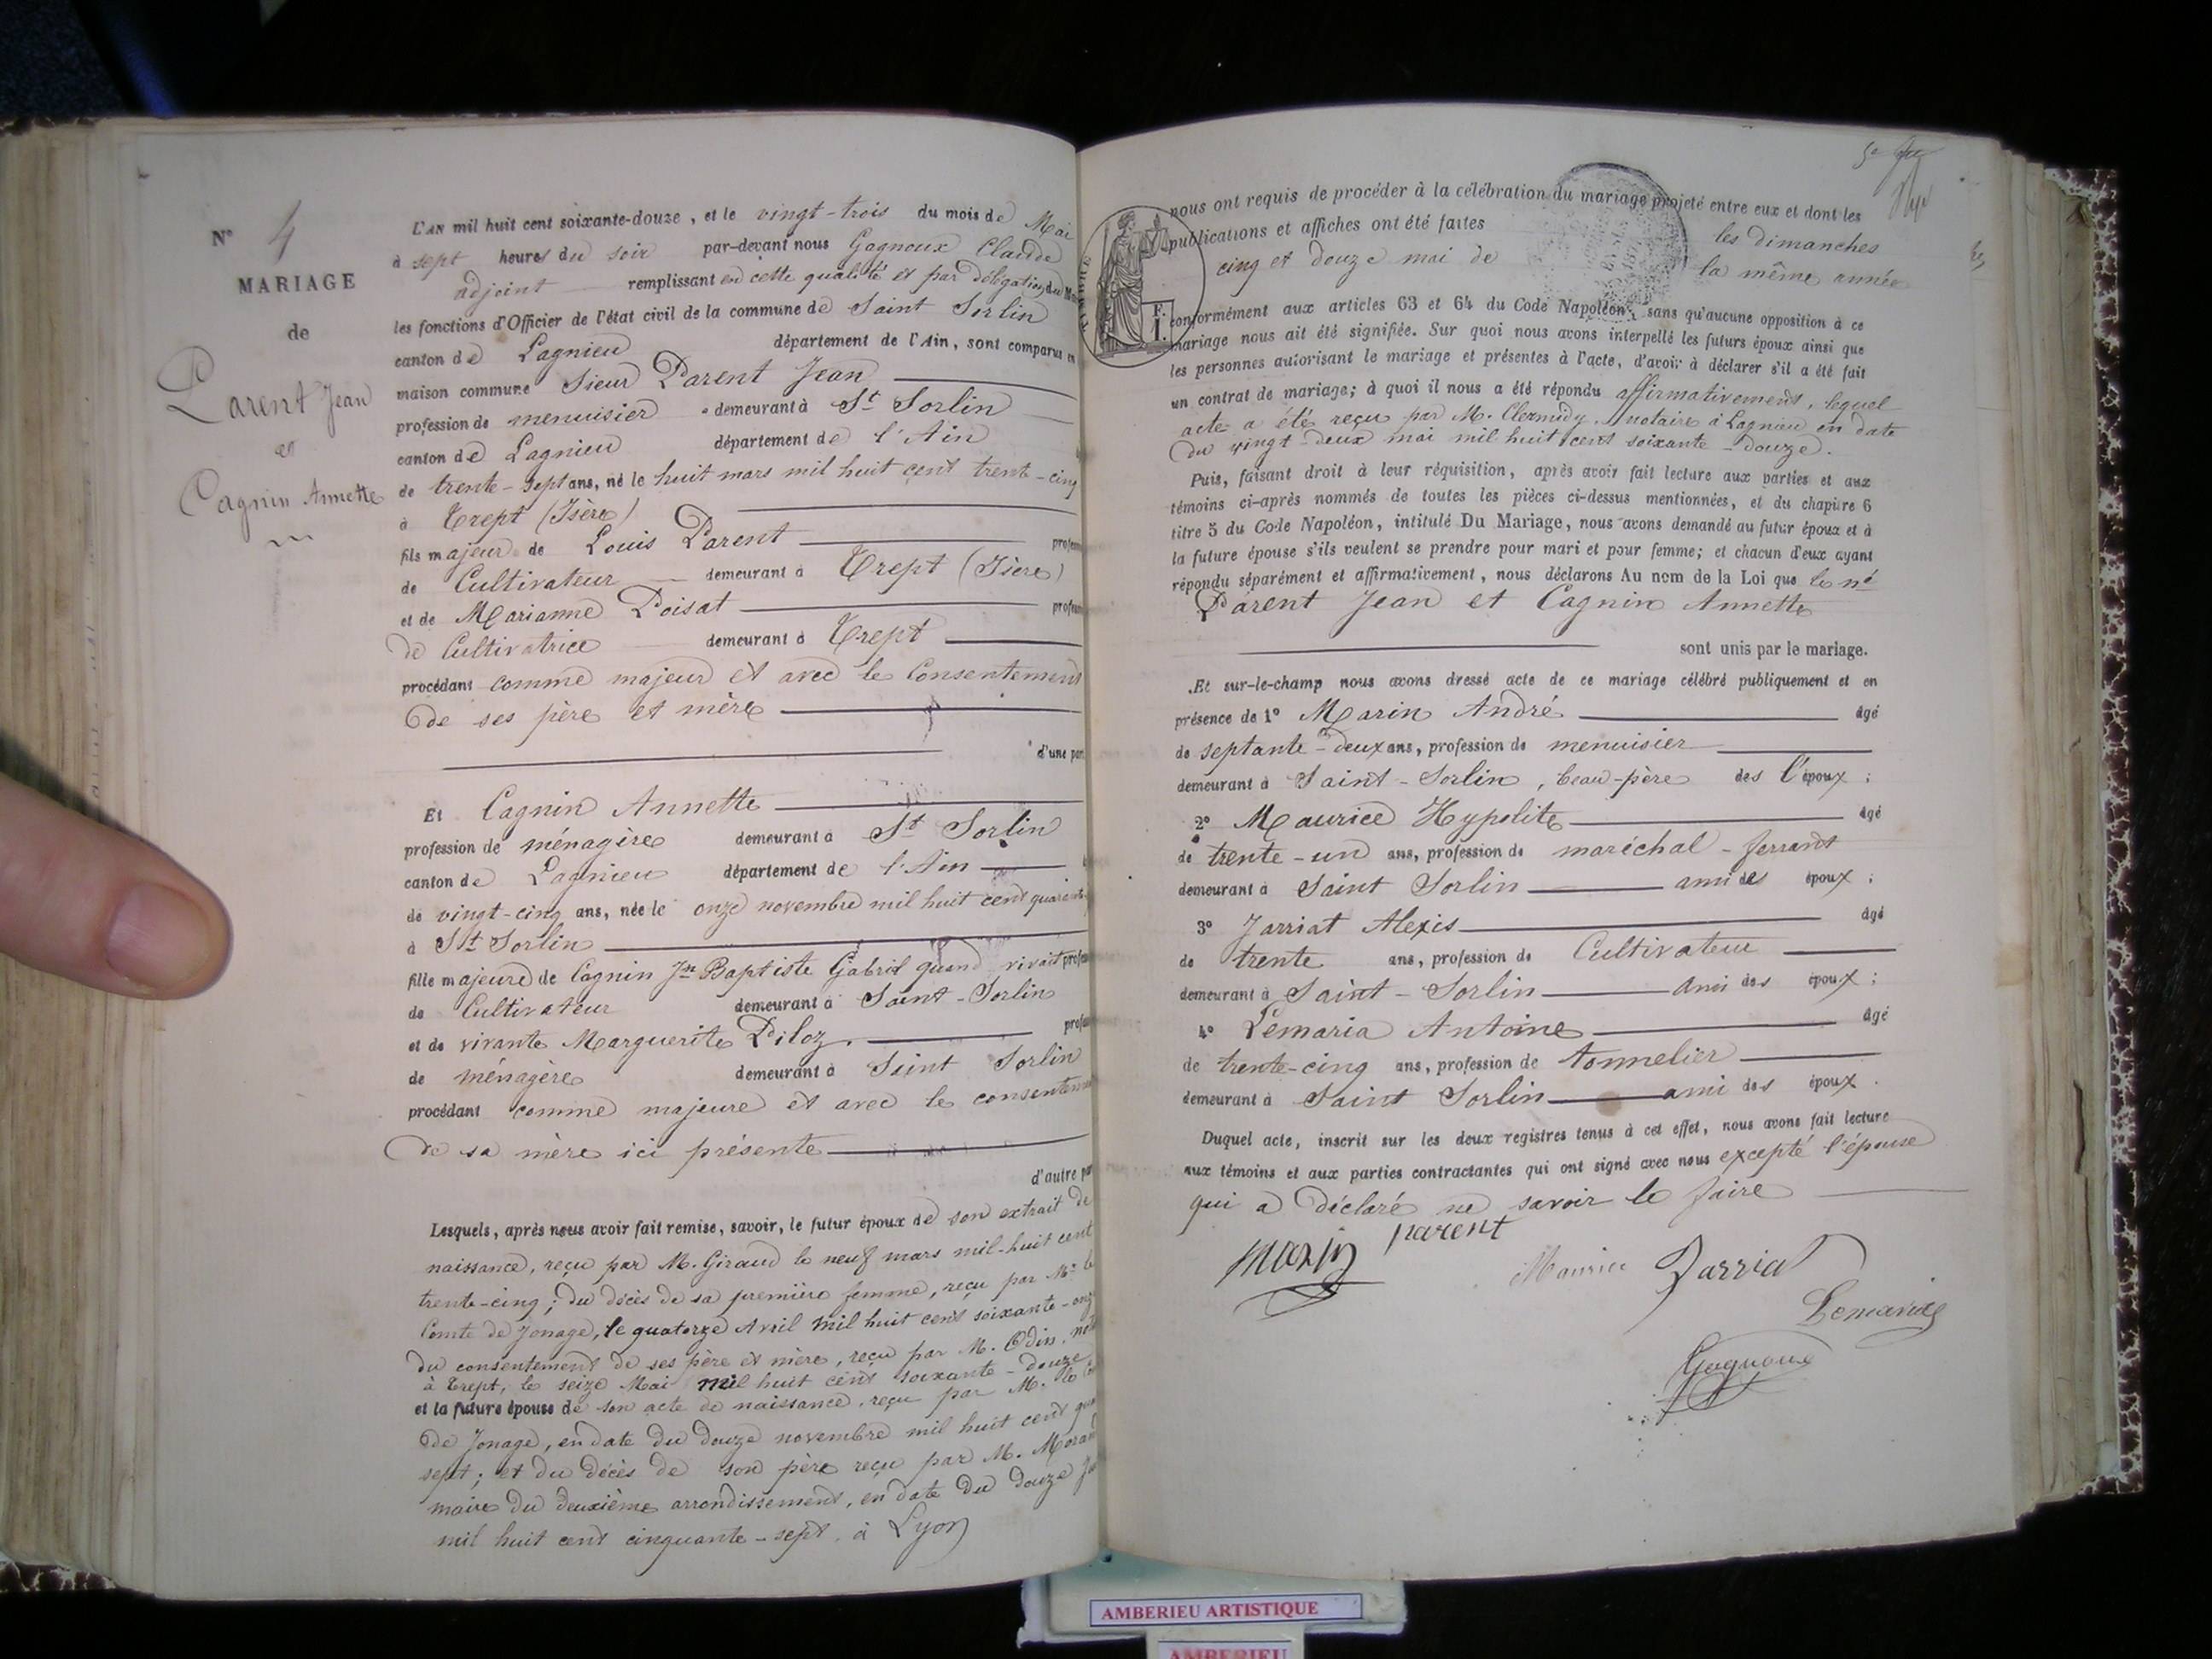 N° 4
MARIAGE
de
Parent Jean
et
Cagnin Annette
L'AN mil huit cent soixante-douze, et le vingt-trois du mois de Mai
à sept heures du soir par-devant nous Gagnoux Claude
adjoint remplissant en cette qualité et par délégation du
les fonctions d'Officier de l'état civil de la commune de Saint Sorlin
canton de Lagnieu département de l'Ain, sont comparus en
maison commune Sieur Parent Jean
profession de menuisier demeurant à St Sorlin
canton de Lagnieu département de l'Ain
de trente-sept ans, né le huit mars mil huit cent trente-cinq
à Trept (Isère)
fils majeur de Louis Parent
de Cultivateur demeurant à Trept (Isère)
et de Marianne Poisat
de Cultivatrice demeurant à Trept
procédant comme majeur et avec le Consentement
de ses père et mère
d'une par
Et Cagnin Annette
profession de ménagère demeurant à St Sorlin
canton de Lagnieu département de l'Ain
de vingt-cinq ans, née le onze novembre mil huit cent
à St Sorlin
fille majeure de Cagnin Jn Baptiste Gabriel quand vivait
de Cultivateur demeurant à Saint-Sorlin
et de vivante Marguerite Piloz.
de ménagère demeurant à Saint Sorlin
procédant comme majeure et avec le
de sa mère ici présente
d'autre
Lesquels, après nous avoir fait remise, savoir, le futur époux de son extrait de
naissance, reçu par M. Giraud le neuf mars mil-huit cent
trente-cinq; du décès de sa première femme, reçu par Mr le
Comte de Jonage, le quatorze Avril mil huit cent soixante-
du consentement de ses père et mère, reçu par M. Odin,
à Trept, le seize Mai mil huit cent soixante-douze
et la future épouse de son acte de naissance, reçu par M. le
de Jonage, en date du douze novembre mil huit cent
sept; et du décès de son père reçu par M.
maire du deuxième arrondissement, en date du douze
mil huit cent cinquante-sept, à Lyon
nous ont requis de procéder à la célébration du mariage projeté entre eux et dont les
publications et affiches ont été faites les dimanches
cinq et douze mai de la même année
conformément aux articles 63 et 64 du Code Napoléon, sans qu'aucune opposition à ce
mariage nous ait été signifiée. Sur quoi nous avons interpellé les futurs époux ainsi que
les personnes autorisant le mariage et présentes à l'acte, d'avoir à déclarer s'il a été fait
un contrat de mariage; à quoi il nous a été répondu affirmativement, lequel
acte a été reçu par M. Clermidy, notaire à Lagnieu en date
du vingt-deux mai mil huit cent soixante-douze.
Puis, faisant droit à leur réquisition, après avoir fait lecture aux parties et aux
témoins ci-après nommés de toutes les pièces ci-dessus mentionnées, et du chapitre 6
titre 5 du Code Napoléon, intitulé Du Mariage, nous avons demandé au futur époux et à
la future épouse s'ils veulent se prendre pour mari et pour femme; et chacun d'eux ayant
répondu séparément et affirmativement, nous déclarons Au nom de la Loi que
Parent Jean et Cagnin Annette
sont unis par le mariage.
Et sur-le-champ nous avons dressé acte de ce mariage célébré publiquement et en
présence de 1° Marin André âgé
de septante-deux ans, profession de menuisier
demeurant à Saint-Sorlin, beau-père des l'époux;
2° Maurice Hypolite âgé
de trente-un ans, profession de maréchal-ferrant
demeurant à Saint Sorlin ami des époux;
3° Jarriat Alexis âgé
de trente ans, profession de Cultivateur
demeurant à Saint-Sorlin ami des époux;
4° Lemaria Antoine âgé
de trente-cinq ans, profession de tonnelier
demeurant à Saint Sorlin ami des époux.
Duquel acte, inscrit sur les deux registres tenus à cet effet, nous avons fait lecture
aux témoins et aux parties contractantes qui ont signé avec nous excepté l'épouse
qui a déclaré ne savoir le faire
Marin parent
Maurice Jarriat
Lemaria
Gagnoux
AMBERIEU ARTISTIQUE
AMBERIEU